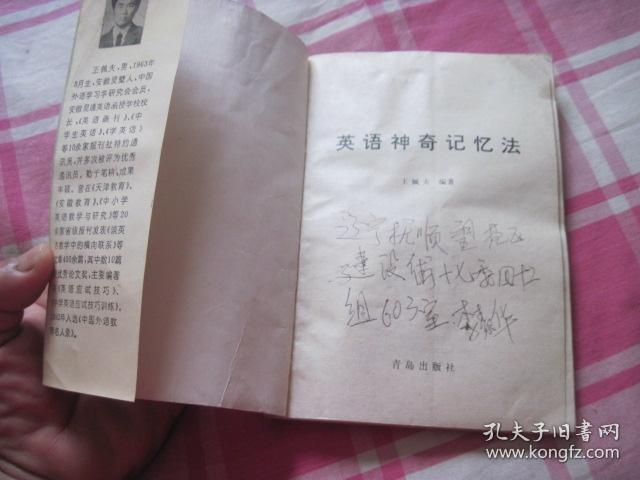 王佩夫,男,1963年
8月生,安徽灵璧人,中国
外语学习学研究会会员,
安徽灵通英语函授学校校
长,《英语画刊》、《中
学生英语》、《学英语》
等10余家报刊社特约通
讯员,并多次被评为优秀
通讯员。勤于笔耕,成果
丰硕。曾在《天津教育》、
《安徽教育》、《中小学
英语教学与研究》等20
家省级报刊发表《谈英
语教学中的横向联系》等
文章400余篇,其中数10篇
获优秀论文奖,主要编著
《英语应试技巧》、
《中学英语应试技巧训练》。
年入选《中国外语教
名人录》。
英语神奇记忆法
王佩夫 编著
辽宁抚顺望花区
建设街十九委四
组603室 李 华
青岛出版社
孔夫子旧书网
www.kongfz.com